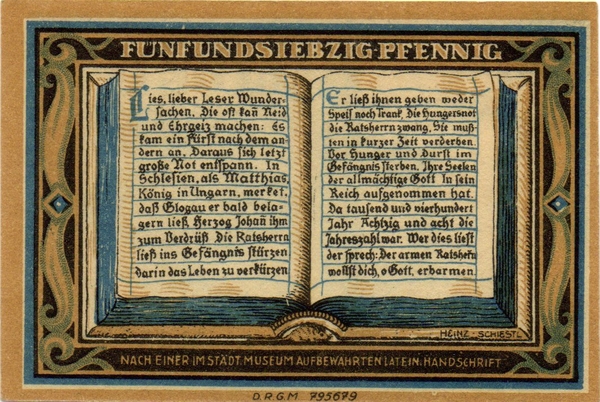 FÜNFUNDSIEBZIG-PFENNIG
Lies, lieber Leser Wunder-
sachen, Die oft kañ Neid
und Ehrgeiz machen: Es
kam ein Fürst nach dem an
dern an. Daraus sich letzt
große Not entspann. In
Schlesien, als Matthias,
König in Ungarn, merket,
daß Glogau er bald bela-
gern ließ, Herzog Johañ ihm
zum Verdrüß Die Ratsherrn
ließ ins Gefängnis stürzen
darin das Leben zu verkürzen
Er ließ ihnen geben weder
Speis noch Trank, Die Hungersnot
die Ratsherrn zwang, Sie muß-
ten in kurzer Zeit verderben.
Vor Hunger und Durst im
Gefängnis sterben. Ihre Seelen
der allmächtige Gott In sein
Reich aufgenommen hat.
Da tausend und vierhundert
Jahr Achtzig und acht die
Jahreszahl war. Wer dies liest
der sprech: Der armen Ratsherrn
wollst dich, o Gott, erbarmen
HEINZ-SCHIESTL
NACH EINER IM STÄDT. MUSEUM AUFBEWAHRTEN LATEIN. HANDSCHRIFT
D.R.G.M 795679